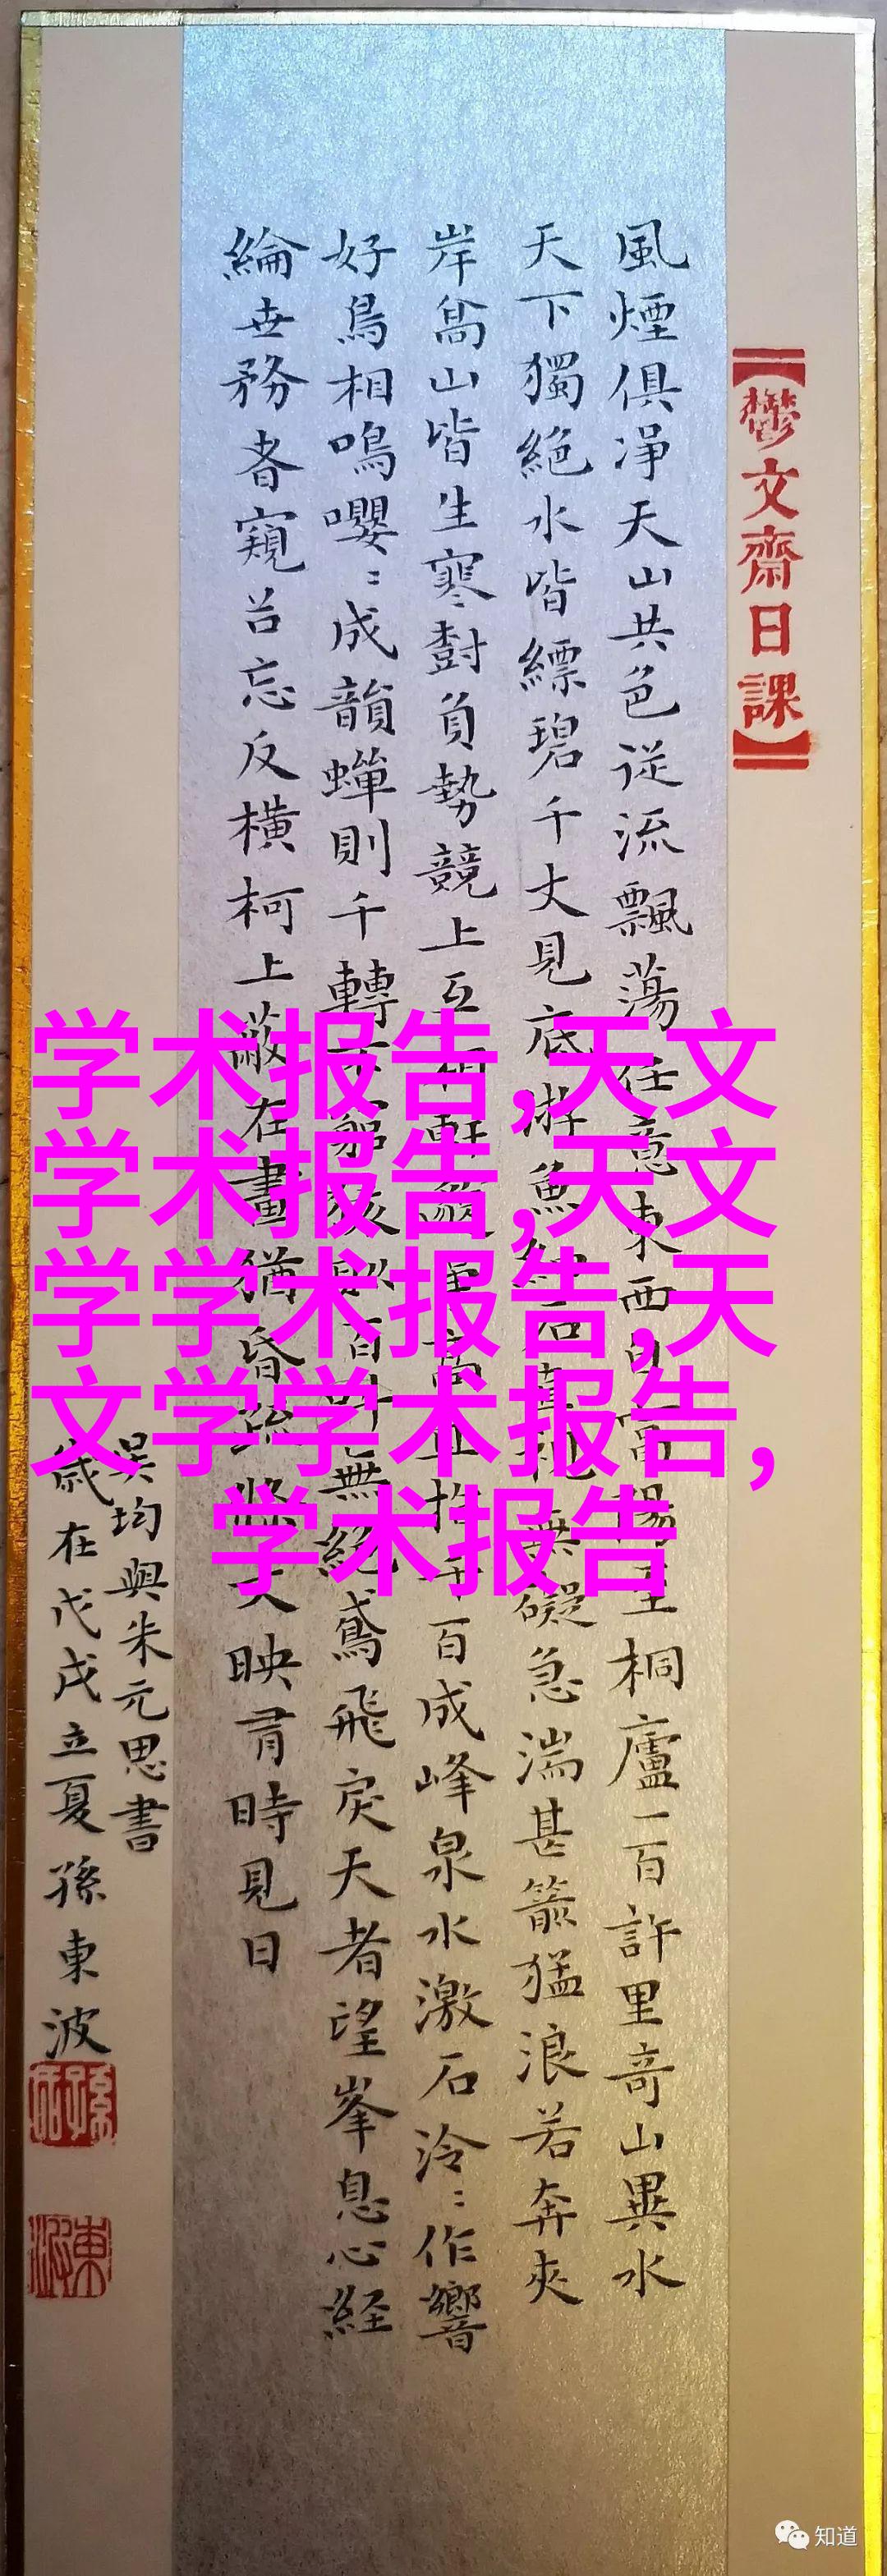 【鬱文齋日課】
風煙俱淨天山共色從流飄蕩任意東西自富陽至桐廬一百許里奇山異水
天下獨絕水皆縹碧千丈見底游魚細石直視無礙急湍甚箭猛浪若奔夾
岸高山皆生寒樹負勢競上互相軒邈爭高直指千百成峰泉水激石泠〻作響
好鳥相鳴嚶〻成韻蟬則千轉不窮猨則百叫無絕鳶飛戾天者望峯息心経
綸世務者窺谷忘反橫柯上蔽在晝猶昏疏條交映有時見日
吳均與朱元思書
歲在戊戌立夏孫東波
学术报告,天文
学术报告,天文
学学术报告,天
文学学术报告,
学术报告
知道